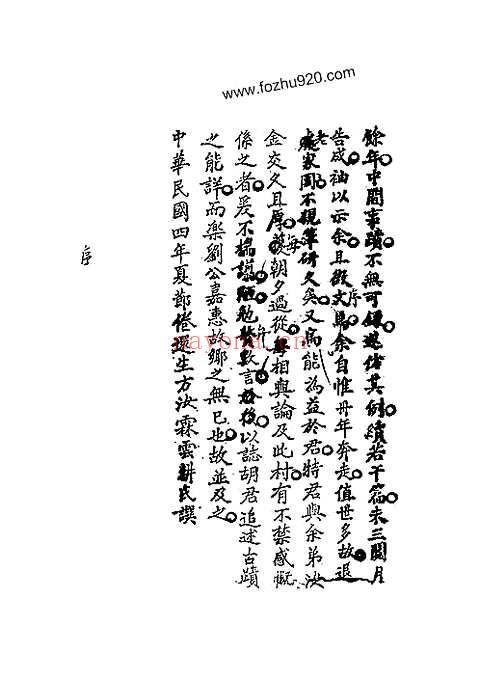 www.fozhu920.com
餘年中間事蹟不無可錄遂仿其例續若干篇未三閱月
告成袖以示余且徵文序焉余自惟卅年奔走值世多故退
老家園不親筆研久矣又烏能為益於君特君與余弟汝
金交久且厚每朝夕過從每相與論及此村有不禁感慨
係之者爰不揣謭陋勉數言於後以誌胡君追述古蹟
之能詳而樂劉公嘉惠故鄉之無已也故並及之
中華民國四年夏節倦還生方汝霖雲耕氏譔
序
nayona.cn